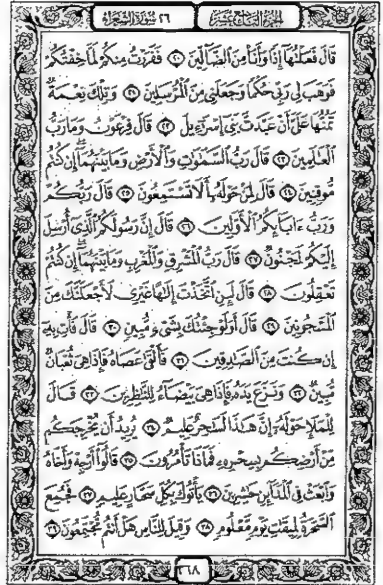 الجزء التاسع عشر
٢٦ سورة الشعراء
قَالَ فَعَلْتُهَا إِذًا وَأَنَا۠ مِنَ ٱلضَّآلِّينَ ٢٠ فَفَرَرْتُ مِنكُمْ لَمَّا خِفْتُكُمْ
فَوَهَبَ لِى رَبِّى حُكْمًا وَجَعَلَنِى مِنَ ٱلْمُرْسَلِينَ ٢١ وَتِلْكَ نِعْمَةٌ
تَمُنُّهَا عَلَىَّ أَنْ عَبَّدتَّ بَنِىٓ إِسْرَٰٓءِيلَ ٢٢ قَالَ فِرْعَوْنُ وَمَا رَبُّ
ٱلْعَٰلَمِينَ ٢٣ قَالَ رَبُّ ٱلسَّمَٰوَٰتِ وَٱلْأَرْضِ وَمَا بَيْنَهُمَآ إِن كُنتُم
مُّوقِنِينَ ٢٤ قَالَ لِمَنْ حَوْلَهُۥٓ أَلَا تَسْتَمِعُونَ ٢٥ قَالَ رَبُّكُمْ
وَرَبُّ ءَابَآئِكُمُ ٱلْأَوَّلِينَ ٢٦ قَالَ إِنَّ رَسُولَكُمُ ٱلَّذِىٓ أُرْسِلَ
إِلَيْكُمْ لَمَجْنُونٌ ٢٧ قَالَ رَبُّ ٱلْمَشْرِقِ وَٱلْمَغْرِبِ وَمَا بَيْنَهُمَآ إِن كُنتُمْ
تَعْقِلُونَ ٢٨ قَالَ لَئِنِ ٱتَّخَذْتَ إِلَٰهًا غَيْرِى لَأَجْعَلَنَّكَ مِنَ
ٱلْمَسْجُونِينَ ٢٩ قَالَ أَوَلَوْ جِئْتُكَ بِشَىْءٍ مُّبِينٍ ٣٠ قَالَ فَأْتِ بِهِۦٓ
إِن كُنتَ مِنَ ٱلصَّٰدِقِينَ ٣١ فَأَلْقَىٰ عَصَاهُ فَإِذَا هِىَ ثُعْبَانٌ
مُّبِينٌ ٣٢ وَنَزَعَ يَدَهُۥ فَإِذَا هِىَ بَيْضَآءُ لِلنَّٰظِرِينَ ٣٣ قَالَ
لِلْمَلَإِ حَوْلَهُۥٓ إِنَّ هَٰذَا لَسَٰحِرٌ عَلِيمٌ ٣٤ يُرِيدُ أَن يُخْرِجَكُم
مِّنْ أَرْضِكُم بِسِحْرِهِۦ فَمَاذَا تَأْمُرُونَ ٣٥ قَالُوٓا۟ أَرْجِهْ وَأَخَاهُ
وَٱبْعَثْ فِى ٱلْمَدَآئِنِ حَٰشِرِينَ ٣٦ يَأْتُوكَ بِكُلِّ سَحَّارٍ عَلِيمٍ ٣٧ فَجُمِعَ
ٱلسَّحَرَةُ لِمِيقَٰتِ يَوْمٍ مَّعْلُومٍ ٣٨ وَقِيلَ لِلنَّاسِ هَلْ أَنتُم مُّجْتَمِعُونَ ٣٩
٣٦٨